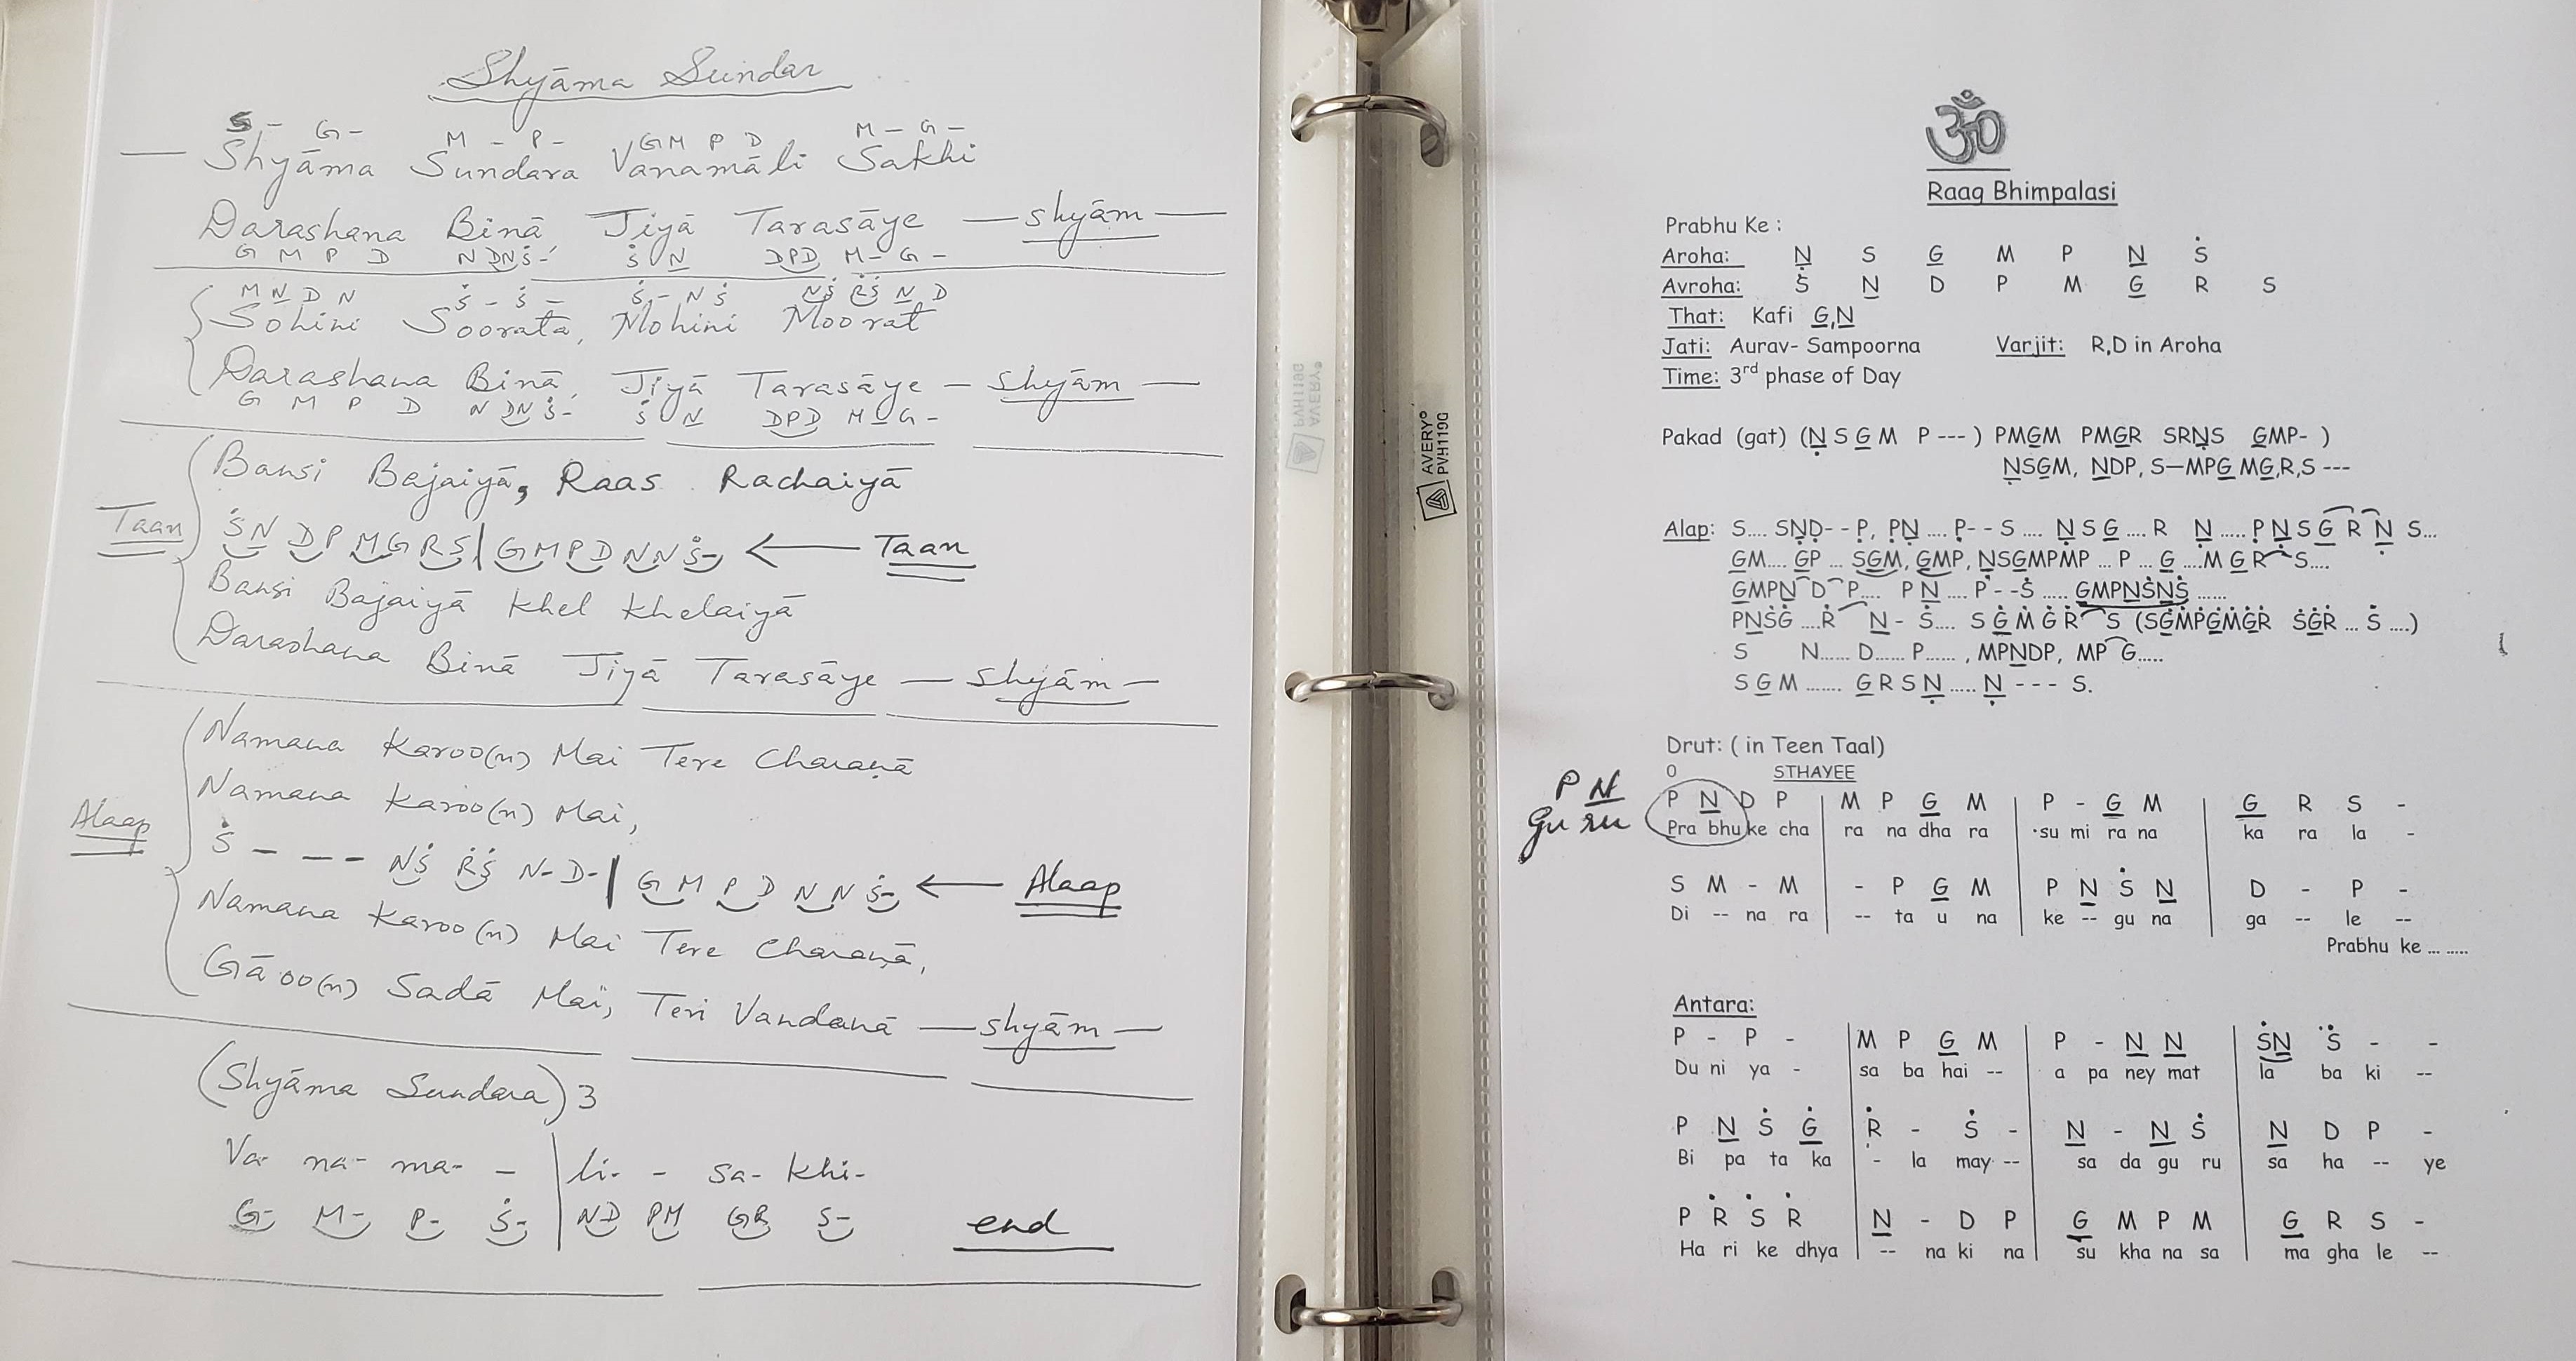 Shyāma Sundar
S - G - M - P - G M P D M - G -
— Shyāma Sundara Vanamāli Sakhi
Darashana Binā, Jiyā Tarasāye — shyām —
G M P D N DNṠ- Ṡ N̲ DPD M- G -
M N̲ D N Ṡ - Ṡ - Ṡ - N Ṡ NṠ ṘṠ N̲ D
Sohini Soorata, Mohini Moorat
Darashana Binā, Jiyā Tarasāye — shyām —
G M P D N DN Ṡ- Ṡ N̲ DPD M - G -
Bansi Bajaiyā, Raas Rachaiyā
Taan
ṠN̲ DP MG RS | GM PD NN Ṡ- ← Taan
Bansi Bajaiyā Khel Khelaiyā
Darashana Binā Jiyā Tarasāye — shyām —
Namana Karoo(n) Mai Tere Charaṇā
Namana Karoo(n) Mai,
Alaap
Ṡ - - - NṠ ṘṠ N- D- | GM PD NN Ṡ- ← Alaap
Namana Karoo(n) Mai Tere Charaṇā,
Gāoo(n) Sadā Mai, Teri Vandanā — shyām —
(Shyāma Sundara) 3
Va- na- ma- - | li- - sa- khi-
G- M- P- Ṡ- | ND PM GR S- end
AVERY®
PVH119G
ॐ
Raag Bhimpalasi
Prabhu Ke :
Aroha: Ṇ̲ S G̲ M P N̲ Ṡ
Avroha: Ṡ N̲ D P M G̲ R S
That: Kafi G̲,N̲
Jati: Aurav- Sampoorna Varjit: R,D in Aroha
Time: 3rd phase of Day
Pakad (gat) (Ṇ̲ S G̲ M P --- ) PMG̲M PMG̲R SRṆ̲S G̲MP- )
Ṇ̲SG̲M, N̲DP, S—MPG̲ MG̲,R,S ---
Alap: S.... SṆ̲Ḍ- - P̣, P̣Ṇ̲ .... P̣- - S .... Ṇ̲ S G̲ .... R Ṇ̲ ..... P̣ Ṇ̲ S G̲ R Ṇ̲ S...
G̲M.... G̲P ... SG̲M, G̲MP, N̲SG̲MPMP ... P ... G̲ ....M G̲ R S....
G̲MPN̲ D P.... P N̲ .... P - -Ṡ ..... G̲MPN̲ṠN̲Ṡ ......
PN̲ṠĠ ....Ṙ N̲ - Ṡ.... S Ġ̲ Ṁ Ġ Ṙ S (SĠ̲ṀṖĠ̲ṀĠ̲Ṙ ṠĠ̲Ṙ ... Ṡ ....)
S N...... D...... P...... , MPN̲DP, MP G.....
S G̲ M ....... G̲ R S Ṇ̲ ..... Ṇ̲ - - - S.
Drut: ( in Teen Taal)
0 STHAYEE
P N̲
Guru
P N̲ D P | M P G̲ M | P - G̲ M | G̲ R S -
Pra bhu ke cha | ra na dha ra | su mi ra na | ka ra la -
S M - M | - P G̲ M | P N̲ Ṡ N̲ | D - P -
Di -- na ra | -- ta u na | ke -- gu na | ga -- le --
Prabhu ke ... .....
Antara:
P - P - | M P G̲ M | P - N̲ N̲ | ṠN̲ Ṡ - -
Du ni ya - | sa ba hai -- | a pa ney mat | la ba ki --
P N̲ Ṡ Ġ̲ | Ṙ - Ṡ - | N̲ - N̲ Ṡ | N̲ D P -
Bi pa ta ka | - la may -- | sa da gu ru | sa ha -- ye
P Ṙ Ṡ Ṙ | N̲ - D P | G̲ M P M | G̲ R S -
Ha ri ke dhya | -- na ki na | su kha na sa | ma gha le --